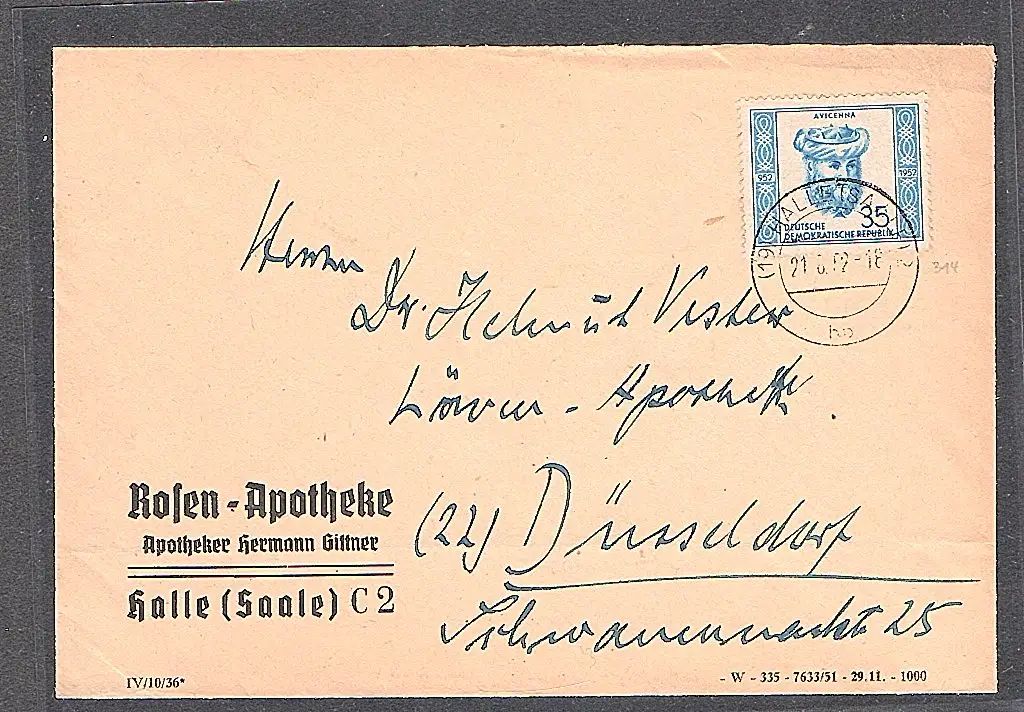 AVICENNA
952 1952
35
DEUTSCHE
DEMOKRATISCHE REPUBLIK
(19 HALLE (SAALE)
21
-18
bb
314
Herrn
Dr. Helmut Vester
Löwen-Apotheke.
(22) Düsseldorf
Schwanenmarkt 25
Rosen-Apotheke
Apotheker Hermann Gittner
Halle (Saale) C 2
IV/10/36*
- W - 335 - 7633/51 - 29.11. - 1000